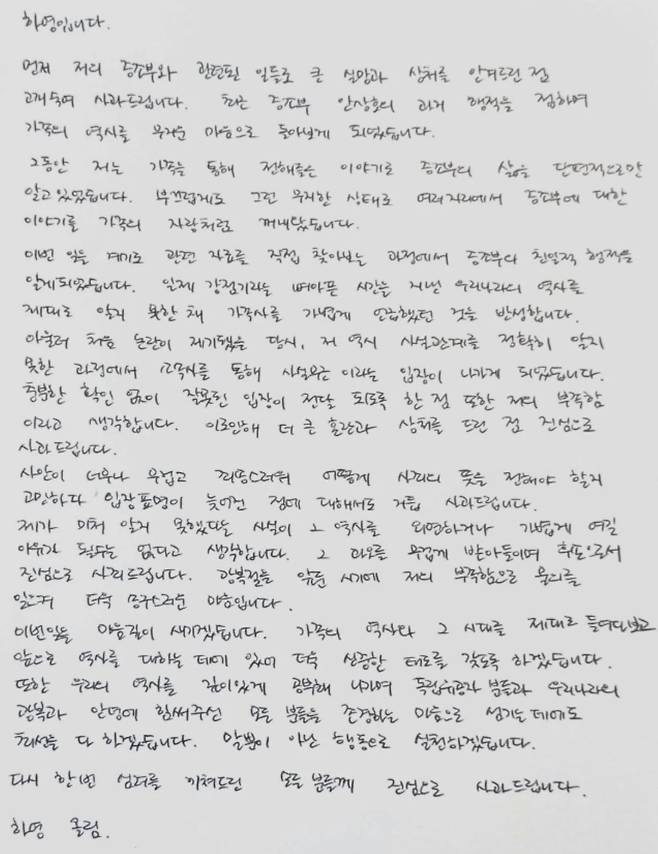 하영입니다.
먼저 저의 증조부와 관련된 일들로 큰 실망과 상처를 안겨드린 점
고개숙여 사과드립니다. 최근 증조부 안상호의 과거 행적을 접하며
가족의 역사를 무거운 마음으로 돌아보게 되었습니다.
그동안 저는 가족을 통해 전해들은 이야기로 증조부의 삶을 단편적으로만
알고 있었습니다. 부끄럽게도 그런 무지한 상태로 여러자리에서 증조부에 대한
이야기를 가족의 자랑처럼 꺼내왔습니다.
이번 일을 계기로 관련 자료를 직접 찾아보는 과정에서 증조부의 친일적 행적을
알게되었습니다. 일제 강점기라는 뼈아픈 시간을 지낸 우리나라의 역사를
제대로 알지 못한 채 가족사를 가볍게 언급했던 것을 반성합니다.
아울러 처음 논란이 제기됐을 당시, 저 역시 사실관계를 정확히 알지
못한 과정에서 소속사를 통해 사실무근이라는 입장이 나가게 되었습니다.
충분한 확인 없이 잘못된 입장이 전달 되도록 한 점 또한 저의 부족함
이라고 생각합니다. 이로인해 더 큰 혼란과 상처를 드린 점 진심으로
사과드립니다.
사안이 너무나 무겁고 죄송스러워 어떻게 사죄의 뜻을 전해야 할지
고민하다 입장표명이 늦어진 점에 대해서도 거듭 사과드립니다.
제가 미처 알지 못했다는 사실이 그 역사를 외면하거나 가볍게 여길
이유가 될수는 없다고 생각합니다. 그 과오를 무겁게 받아들이며 후손으로서
진심으로 사죄드립니다. 광복절을 앞둔 시기에 저의 부족함으로 물의를
일으켜 더욱 송구스러운 마음입니다.
이번일을 마음깊이 새기겠습니다. 가족의 역사와 그 시대를 제대로 들여다보고
앞으로 역사를 대하는 데에 있어 더욱 신중한 태도를 갖도록 하겠습니다.
또한 우리의 역사를 깊이있게 공부해 나가며 독립유공자 분들과 우리나라의
광복과 안녕에 힘써주신 모든 분들을 존경하는 마음으로 섬기는데에도
최선을 다 하겠습니다. 말뿐이 아닌 행동으로 실천하겠습니다.
다시 한번 심려를 끼쳐드린 모든 분들께 진심으로 사과드립니다.
하영 올림.